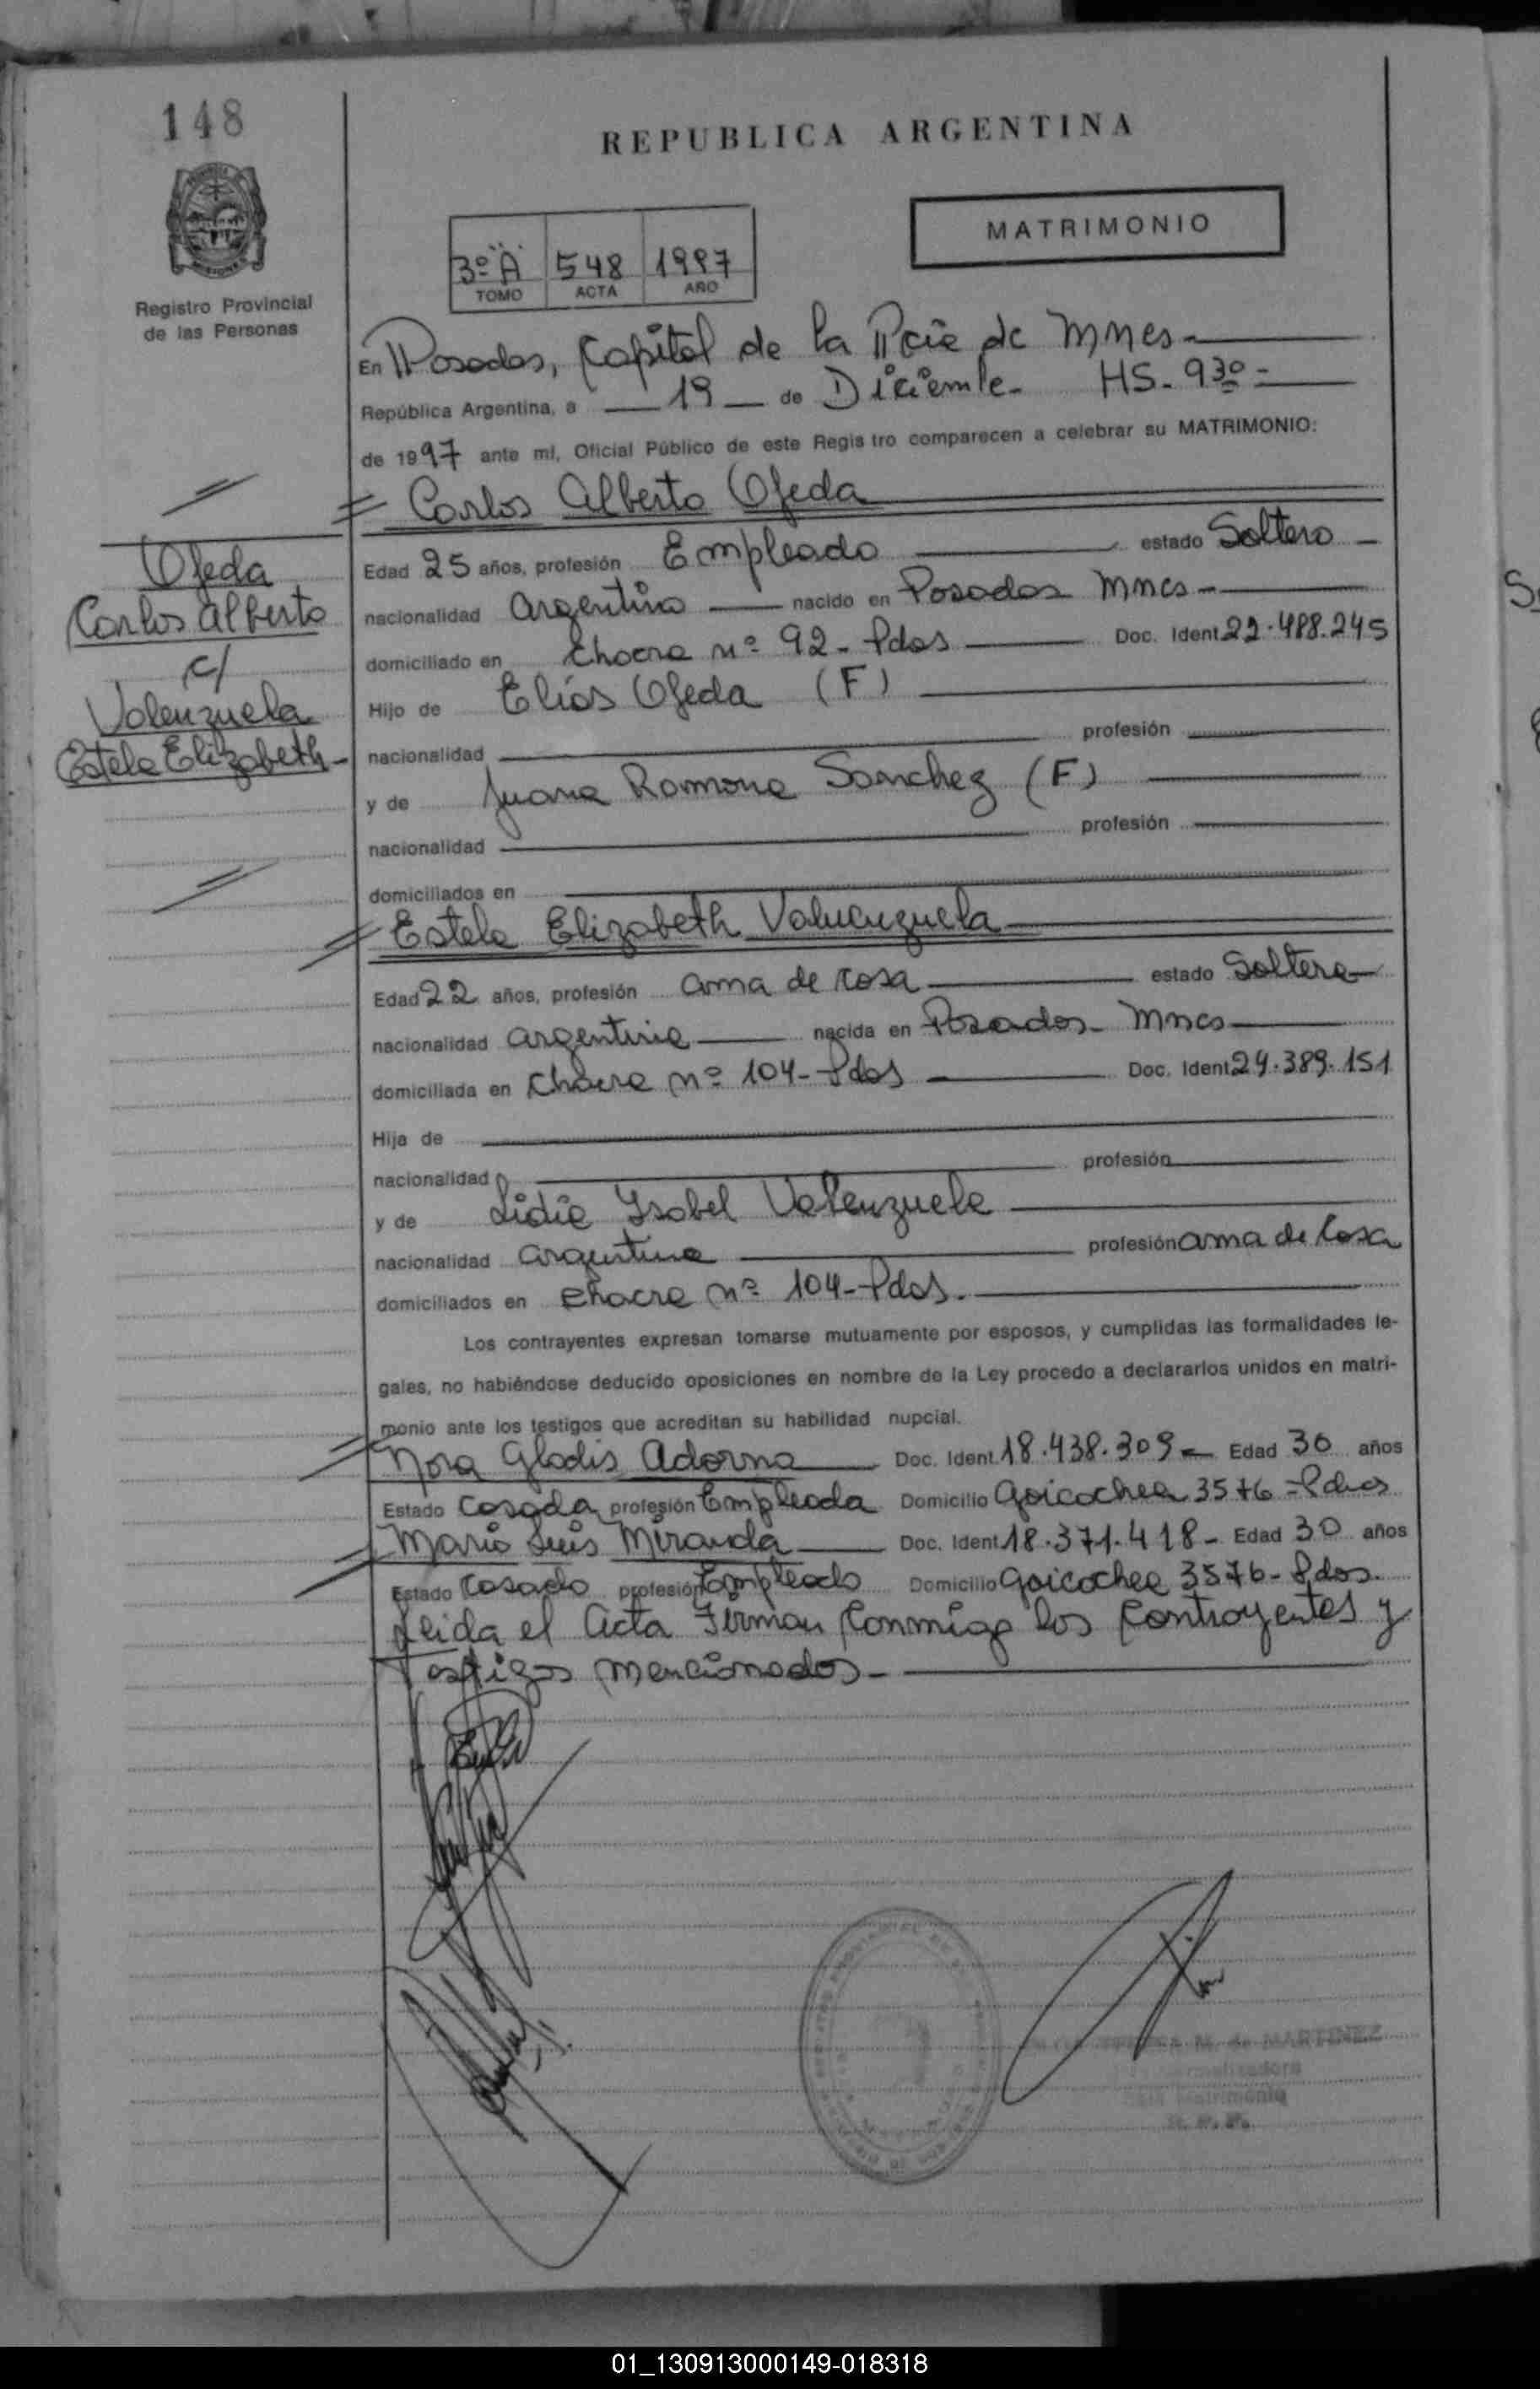 148
REPUBLICA ARGENTINA
MATRIMONIO
3º "A" 548 1997
TOMO ACTA AÑO
Registro Provincial
de las Personas
En Posadas, Capital de la Pcia de Mnes-
República Argentina, a 19 de Diciembre- HS. 930=
de 1997 ante mí, Oficial Público de este Registro comparecen a celebrar su MATRIMONIO:
Carlos Alberto Ojeda
Ojeda
Carlos Alberto
c/
Valenzuela
Estela Elizabeth-
Edad 25 años, profesión Empleado estado Soltero -
nacionalidad Argentina nacido en Posadas Mnes-
domiciliado en Chacra nº 92- Pdas Doc. Ident. 22.488.245
Hijo de Elías Ojeda (F)
nacionalidad profesión
y de Juana Ramona Sanchez (F)
nacionalidad profesión
domiciliados en
Estela Elizabeth Valenzuela
Edad 22 años, profesión ama de casa estado Soltera
nacionalidad argentina nacida en Posadas- Mnes
domiciliada en Chacra nº 104- Pdas Doc. Ident. 24.389.151
Hija de
nacionalidad profesión
y de Lidia Ysabel Valenzuela
nacionalidad argentina profesión ama de casa
domiciliados en Chacra nº 104-Pdas.
Los contrayentes expresan tomarse mutuamente por esposos, y cumplidas las formalidades le-
gales, no habiéndose deducido oposiciones en nombre de la Ley procedo a declararlos unidos en matri-
monio ante los testigos que acreditan su habilidad nupcial.
Nora Gladis Adorna Doc. Ident. 18.438.309- Edad 30 años
Estado Casada profesión Empleada Domicilio Goicochea 3576 - Pdas
Mario Luis Miranda Doc. Ident. 18.371.418- Edad 30 años
Estado Casado profesión Empleado Domicilio Goicochea 3576- Pdas.
Leida el Acta Firman Conmigo los Contrayentes y
Testigos mencionados-
M. de MARTINEZ
Matrimonio
01_130913000149-018318